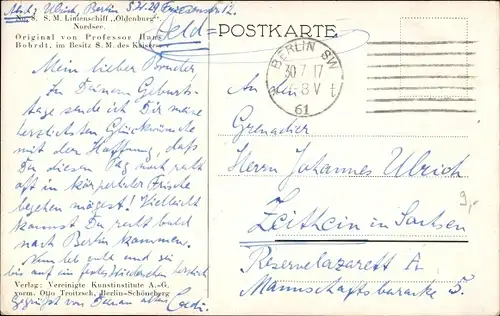 Absdg. Ulrich, Berlin S.W. 29
No. 8. S. M. Linienschiff „Oldenburg“.
Nordsee.
Original von Professor Hans
Bohrdt, im Besitz S. M. des Kaisers
Feld-
POSTKARTE
BERLIN SW
30.7.17
8 V
61
Mein lieber Bruder
Zu Deinem Geburts-
tage sende ich Dir meine
herzlichsten Glückwünsche
mit der Hoffnung, daß
Du diesen Tag noch recht
oft in körperlicher Frische
begehen mögest! Vielleicht
kommst Du recht bald
nach Berlin kommen.
Nun leb wohl und sei
bis auf ein herzlich
gegrüßt von Deinem alten
An den
Grenadier
Herrn Johannes Ulrich
Zeithain in Sachsen
Reservelazarett A
Mannschaftsbaracke 5.
9,-
Verlag: Vereinigte Kunstinstitute A.-G.
vorm. Otto Troitzsch, Berlin-Schöneberg